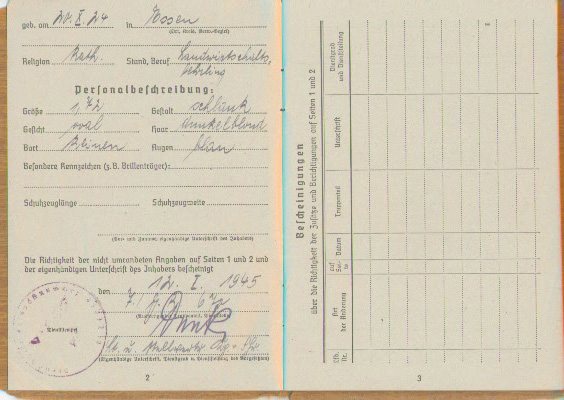 geb. am 20. X. 24 in Essen
(Ort, Kreis, Verw.-Bezirk)
Religion Kath. Stand, Beruf Landwirtschafts,
lehrling
Personalbeschreibung:
Größe 1,72 Gestalt schlank
Gesicht oval Haar dunkelblond
Bart keinen Augen blau
Besondere Kennzeichen (z.B. Brillenträger):
Schuhzeuglänge Schuhzeugweite
(Vor- und Zuname, eigenhändige Unterschrift des Inhabers)
Die Richtigkeit der nicht umrandeten Angaben auf Seiten 1 und 2 und
der eigenhändigen Unterschrift des Inhabers bescheinigt
den 12. I. 1945
Dienststempel
(Eigenhändige Unterschrift, Dienstgrad u. Dienststellung des Vorgesetzten)
2
Bescheinigungen
über die Richtigkeit der Zusätze und Berichtigungen auf Seiten 1 und 2
Lfd. Nr.
Art der Änderung
auf Seite
Datum
Truppenteil
Unterschrift
Dienstgrad und Dienststellung
3